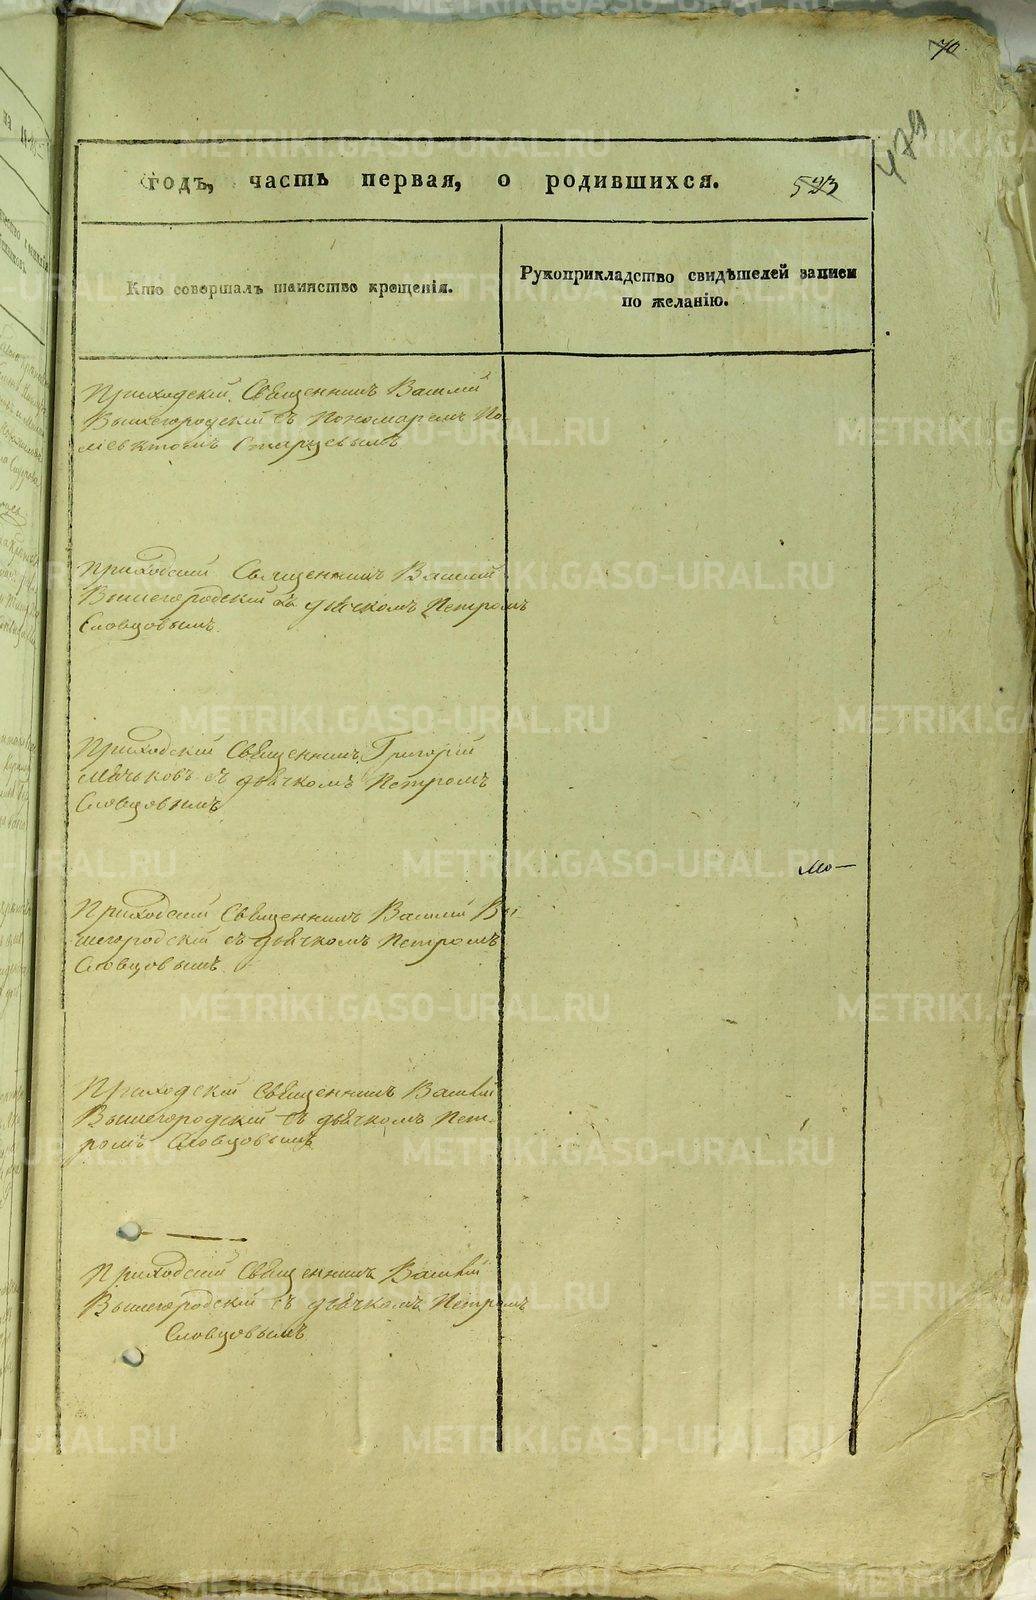 70
479
годъ, часть первая, о родившихся. 523
Кто совершалъ таинство крещенія.
Рукоприкладство свидѣтелей записи
по желанію.
Приходскій Священникъ Василій
Вышегородскій съ Пономаремъ По-
лиевктомъ Старцевымъ
Приходскій Священникъ Василій
Вышегородскій съ дьячкомъ Петромъ
Словцовымъ.
Приходскій Священникъ Григорій
съ дьячкомъ Петромъ
Словцовымъ
Мо—
Приходскій Священникъ Василій Вы-
шегородскій съ дьячкомъ Петромъ
Словцовымъ.
Приходскій Священникъ Василій
Вышегородскій съ дьячкомъ Пет-
ромъ Словцовымъ
Приходскій Священникъ Василій
Вышегородскій съ дьячкомъ Петромъ
Словцовымъ
METRIKI.GASO-URAL.RU